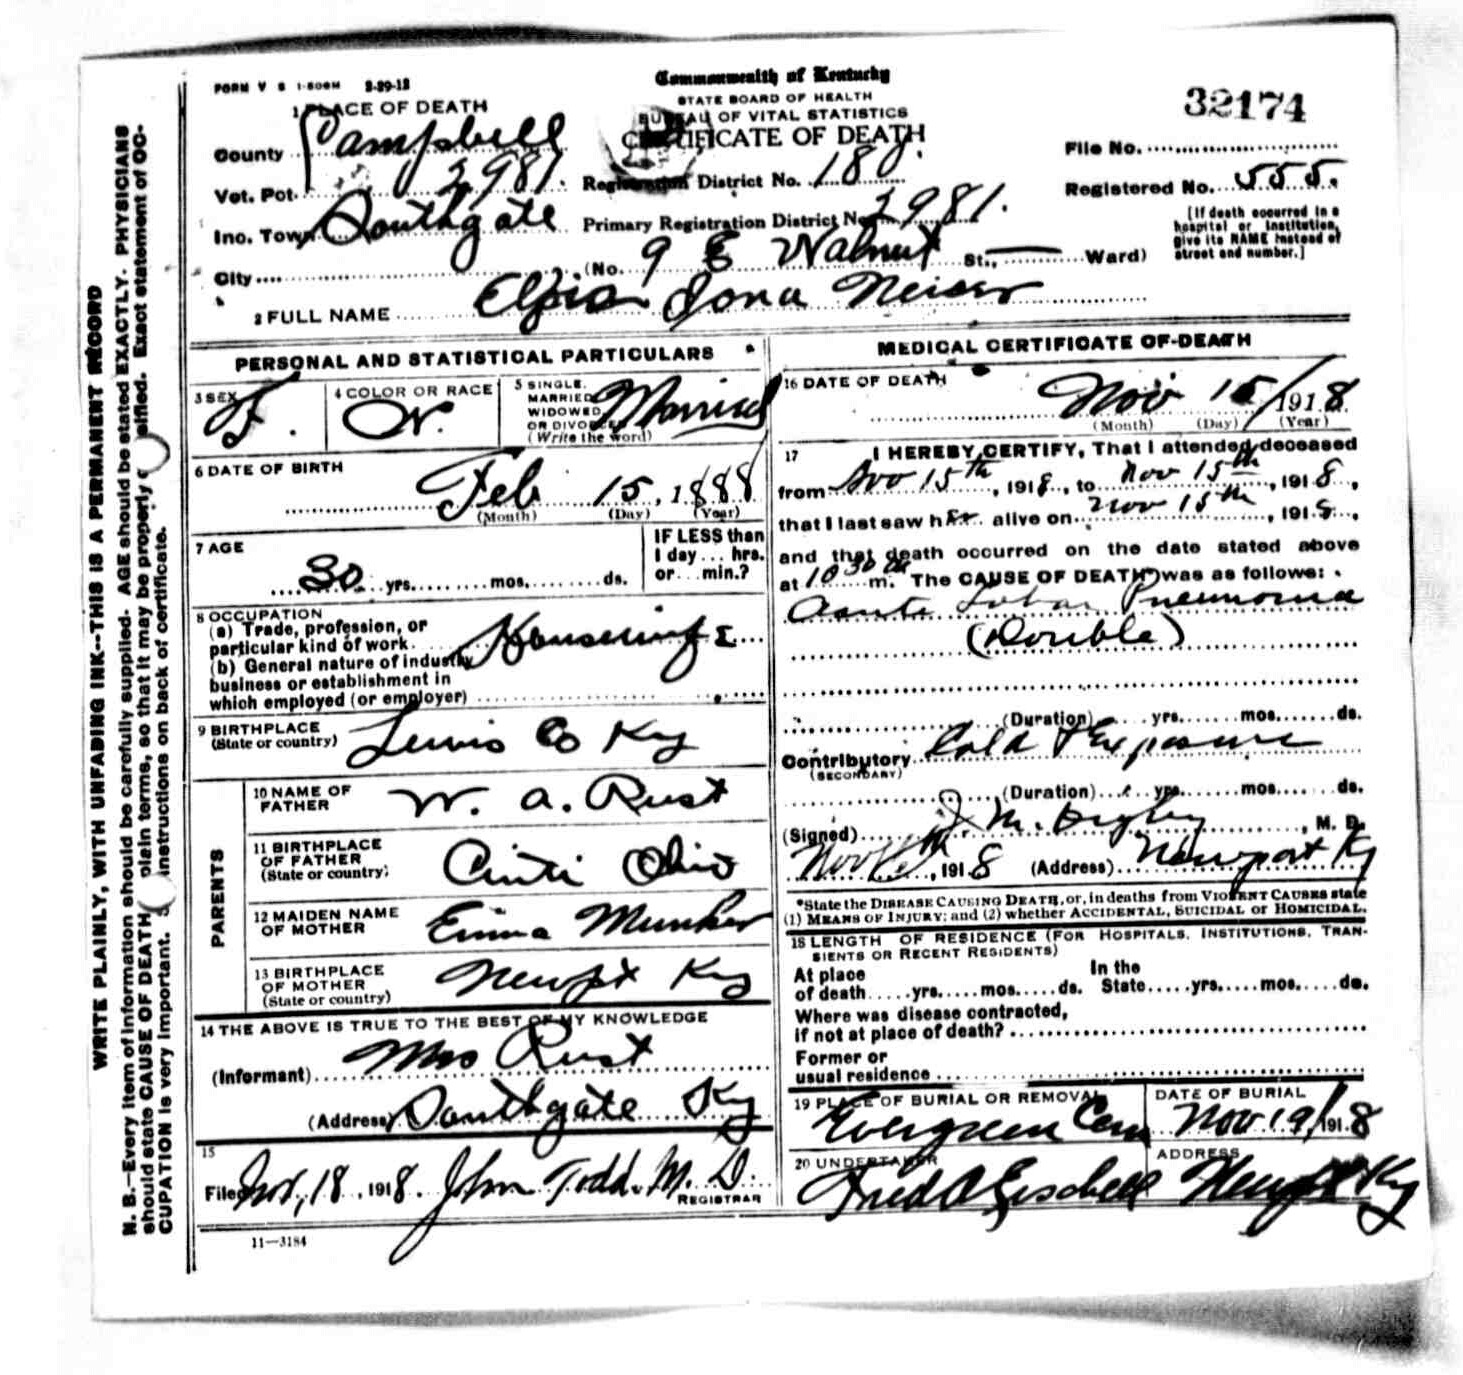 FORM V S 1-500M 2-29-12
Commonwealth of Kentucky
STATE BOARD OF HEALTH
BUREAU OF VITAL STATISTICS
CERTIFICATE OF DEATH
32174
1 PLACE OF DEATH
County Campbell
Vot. Pct. 2981.
Registration District No. 180.
File No.
Registered No. 555.
Inc. Town Southgate
Primary Registration District No. 2981.
City (No. 9 E Walnut St., Ward)
[If death occurred in a
hospital or institution,
give its NAME instead of
street and number.]
2 FULL NAME Iona Neiser
PERSONAL AND STATISTICAL PARTICULARS
3 SEX F.
4 COLOR OR RACE W.
5 SINGLE,
MARRIED,
WIDOWED,
OR DIVORCED
(Write the word) Married
6 DATE OF BIRTH
Feb 15, 1888
(Month) (Day) (Year)
7 AGE
30 yrs. mos. ds.
IF LESS than
1 day... hrs.
or... min.?
8 OCCUPATION
(a) Trade, profession, or
particular kind of work Housewife
(b) General nature of industry
business or establishment in
which employed (or employer)
9 BIRTHPLACE
(State or country) Lewis Co Ky
PARENTS
10 NAME OF
FATHER W. A. Rust
11 BIRTHPLACE
OF FATHER
(State or country) Cinti Ohio
12 MAIDEN NAME
OF MOTHER Emma
13 BIRTHPLACE
OF MOTHER
(State or country) Newpt Ky
14 THE ABOVE IS TRUE TO THE BEST OF MY KNOWLEDGE
(Informant) Mrs Rust
(Address) Southgate Ky
15
Filed Nov, 18, 1918. John Todd. M. D.
REGISTRAR
11—3184
MEDICAL CERTIFICATE OF DEATH
16 DATE OF DEATH
Nov 15/1918
(Month) (Day) (Year)
17 I HEREBY CERTIFY, That I attended deceased
from Nov 15th, 1918, to Nov 15th, 1918,
that I last saw her alive on Nov 15th, 1918,
and that death occurred on the date stated above
at 10 30 a m. The CAUSE OF DEATH was as follows:
Acute Lobar Pneumonia
(Double)
(Duration) yrs. mos. ds.
Contributory Cold & Exposure
(SECONDARY)
(Duration) yrs. mos. ds.
(Signed) J. M. Digby, M. D.
Nov, 1918 (Address) Newport Ky
*State the DISEASE CAUSING DEATH, or, in deaths from VIOLENT CAUSES state
(1) MEANS OF INJURY; and (2) whether ACCIDENTAL, SUICIDAL or HOMICIDAL.
18 LENGTH OF RESIDENCE (FOR HOSPITALS, INSTITUTIONS, TRAN-
SIENTS OR RECENT RESIDENTS)
At place
of death yrs. mos. ds.
In the
State yrs. mos. ds.
Where was disease contracted,
if not at place of death?
Former or
usual residence
19 PLACE OF BURIAL OR REMOVAL
Evergreen Cem
DATE OF BURIAL
Nov 19/1918
20 UNDERTAKER
Fred A
ADDRESS
Newpt Ky
WRITE PLAINLY, WITH UNFADING INK--THIS IS A PERMANENT RECORD
N. B.—Every item of information should be carefully supplied. AGE should be stated EXACTLY. PHYSICIANS
should state CAUSE OF DEATH plain terms, so that it may be properly sified. Exact statement of OC-
CUPATION is very important. instructions on back of certificate.